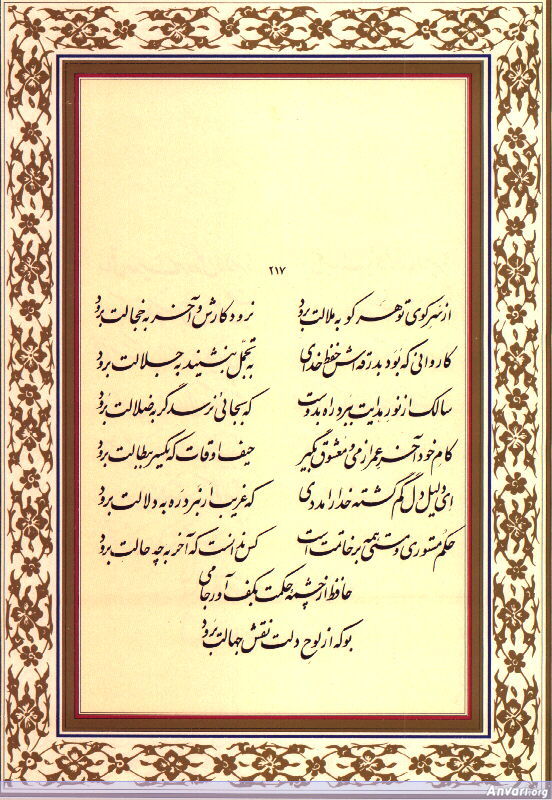 ۲۱۷
از سر کوی تو هر کو به ملالت برود نرود کارش و آخر به خجالت برود
کاروانی که بود بدرقه‌اش حفظ خدای به تجمل بنشیند به جلالت برود
سالک از نور هدایت ببرد راه به دوست که به جائی نرسد گر به ضلالت برود
کام خود آخر عمر از می و معشوق بگیر حیف اوقات که یکسر به بطالت برود
ای دلیل دل گم گشته خدا را مددی که غریب ار نبرد ره به دلالت برود
حکم مستوری و مستی همه بر خاتمت است کس ندانست که آخر به چه حالت برود
حافظ از چشمهٔ حکمت بکف آور جامی
بو که از لوح دلت نقش جهالت برود
Anvari.org